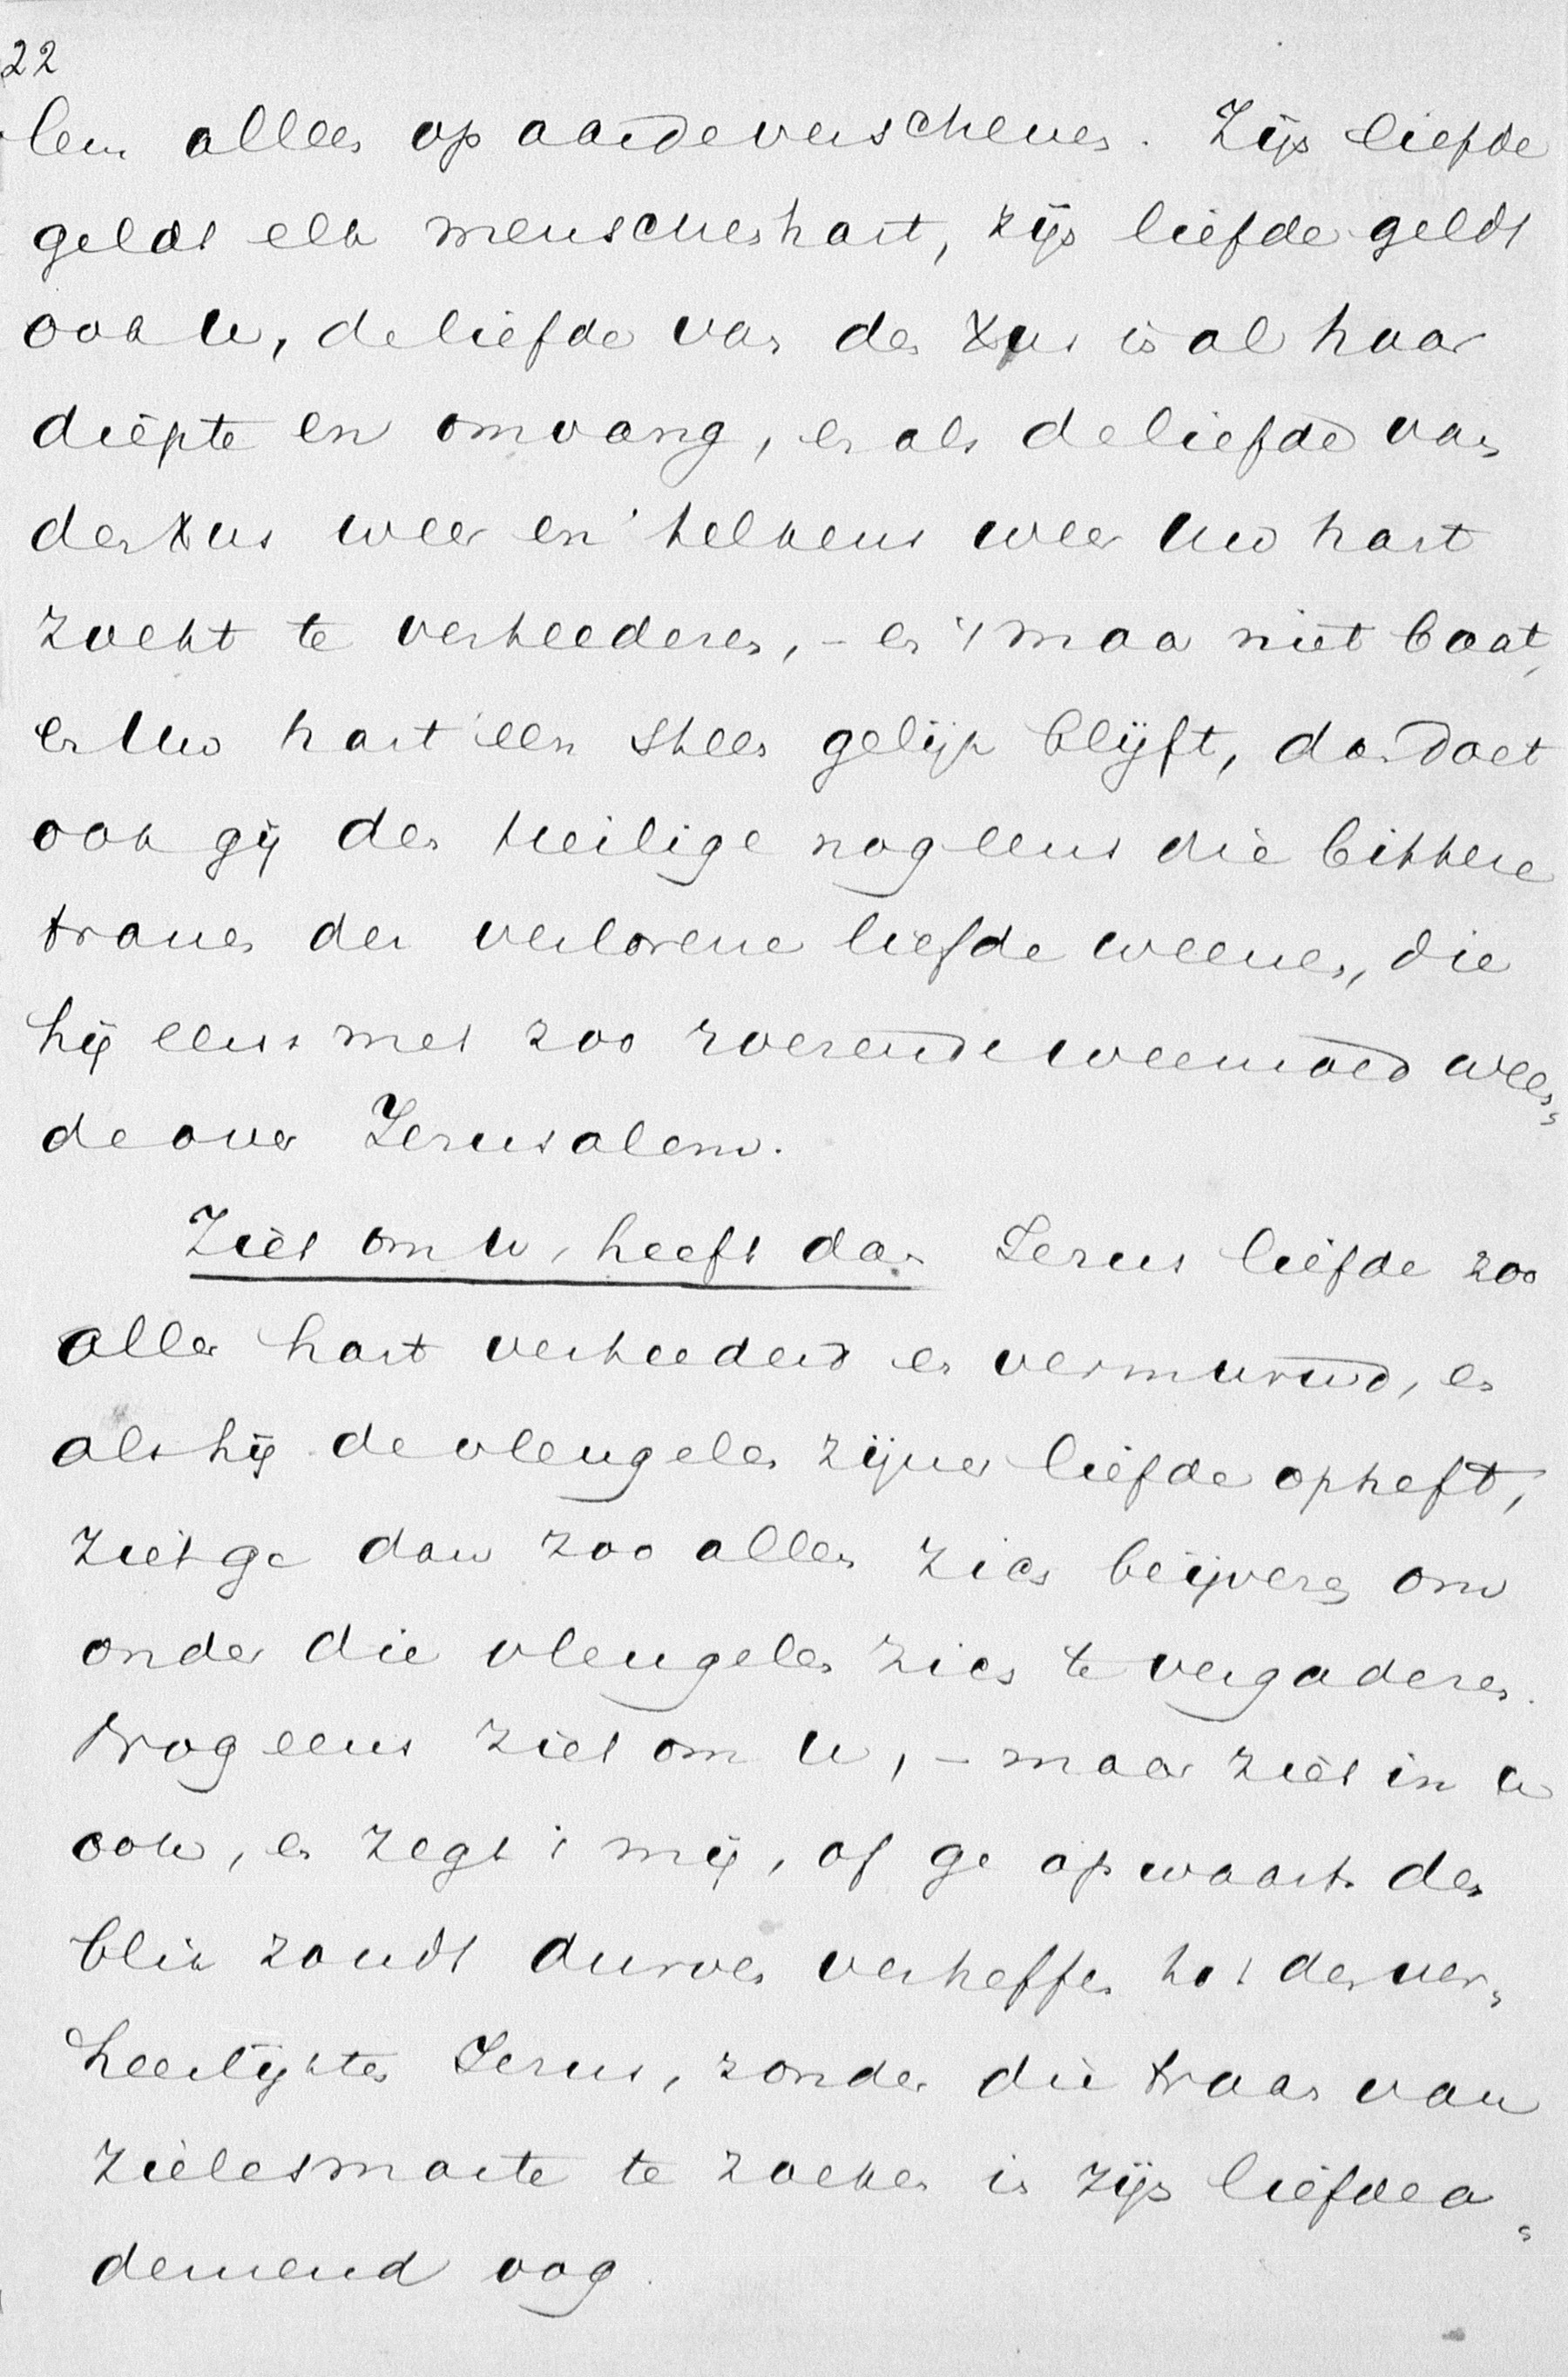 22
len allen op aarde verschenen. Zijn liefde
geldt elk menschenhart, zijn liefde geldt
ook U, de liefde van den Xus in al haar
diepte en omvang, en als de liefde van
den Xus weer en telkens weer Uw hart
zoekt te verteederen, – en 't maa niet baat,
en Uw hart een steen gelijk blijft, dan doet
ook gij den Heilige nog eens die bittere
tranen der verlorene liefde weenen, die
hij eens met zoo roerende weemoed ween„
de over Jerusalem.
Ziet om U, heeft dan Jezus liefde zoo
aller hart verteederd en vermurwd, en
als hij de vleugelen zijner liefde opheft,
ziet ge dan zoo allen zich beijveren om
onder die vleugelen zich te vergaderen.
Nog eens ziet om U, – maar ziet in U
ook, en zegt 't mij, of ge opwaarts den
blik zoudt durven verheffen tot den ver„
heerlijkten Jezus, zonder die traan van
zielesmarte te zoeken in zijn liefdea„
demend oog.